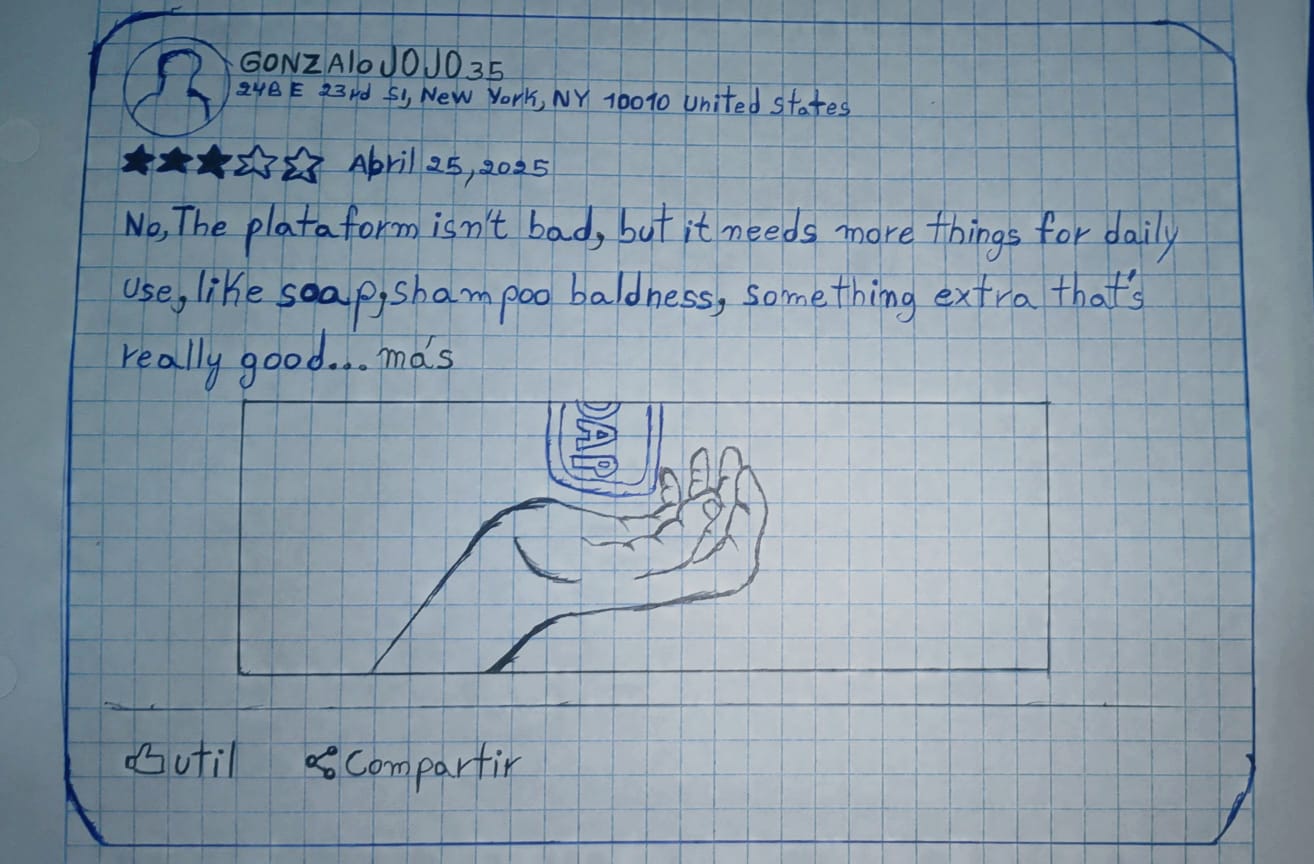 GONZAlo JOJO35
24B E 23rd St, New York, NY 10010 United states
Abril 25, 2025
No, The plataform isn't bad, but it needs more things for daily
use, like soap, shampoo baldness, something extra that's
really good... más
OAP
util Compartir